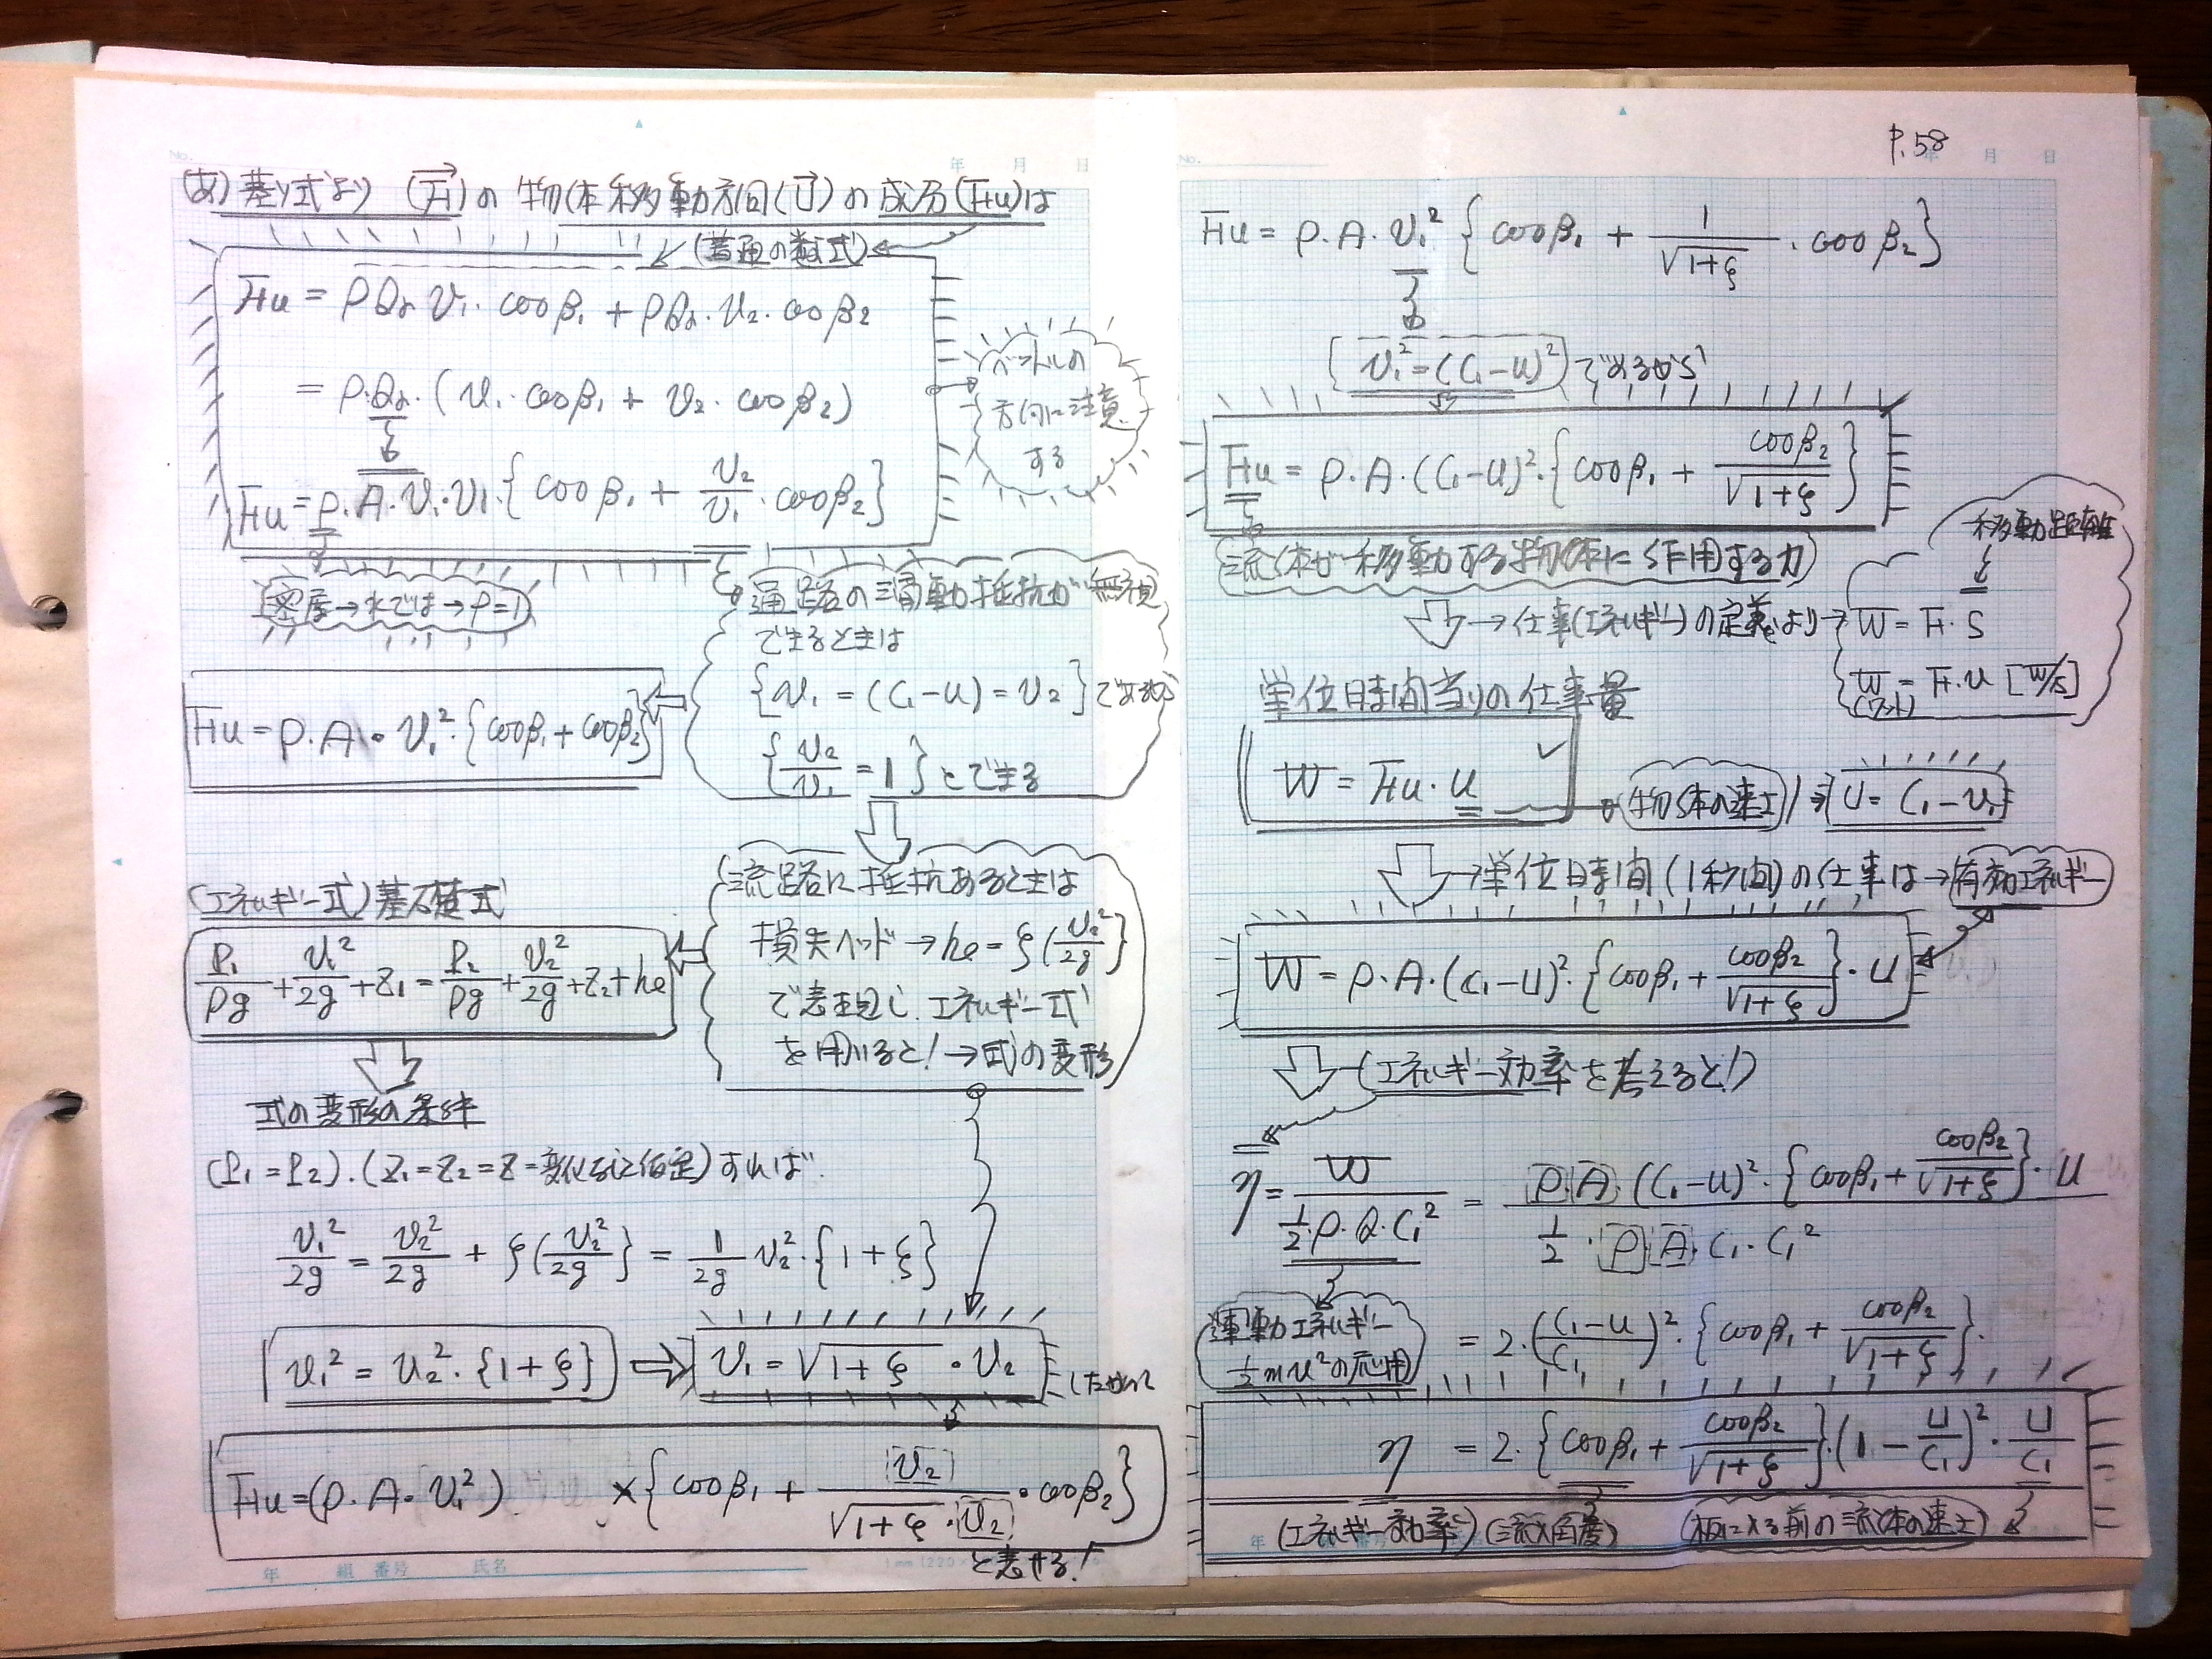 (あ) 基り式より (F→)の 物体移動方向(U→)の 成分(Fu)は
(普通の数式)
Fu = ρQr v₁・cosβ₁ + ρQr・v₂・cosβ₂
= ρ・Qr・(v₁・cosβ₁ + v₂・cosβ₂)
Fu = ρ・A・v₁・v₁・{cosβ₁ + v₂/v₁・cosβ₂}
ベクトルの
方向に注意
する
密度→水では→ρ=1
通路の摺動抵抗が無視
できるときは
{v₁ = (C₁-u) = v₂}であるから
{v₂/v₁ = 1}とできる
Fu = ρ・A・v₁²・{cosβ₁ + cosβ₂}
流路に抵抗あるときは
損失ヘッド→he = ξ(v₂²/2g}
で表現し、エネルギー式
を用いると!→式の変形
(エネルギー式)基礎式
P₁/ρg + v₁²/2g + Z₁ = P₂/ρg + v₂²/2g + Z₂ + he
式の変形の条件
(P₁=P₂)・(Z₁=Z₂=Z=変化なしに仮定)すれば
v₁²/2g = v₂²/2g + ξ(v₂²/2g} = 1/2g v₂²・{1+ξ}
v₁² = v₂²・{1+ξ} ⇒ v₁ = √1+ξ・v₂
したがって
Fu = (ρ・A・v₁²) ×{cosβ₁ + v₂/√1+ξ・v₂・cosβ₂}
と表せる!
年 組 番号 氏名
No. 年 月 日
P.58
Fu = ρ・A・v₁² {cosβ₁ + 1/√1+ξ・cosβ₂}
v₁² = (C₁-u)² であるから
Fu = ρ・A・(C₁-u)²・{cosβ₁ + cosβ₂/√1+ξ}
(流体が移動する物体に作用する力)
→仕事(エネルギー)の定義より→
移動距離
W = F・S
W = F・u [W/s]
(ワット)
単位時間当りの仕事量
W = Fu・u
物体の速さ ⇒ U = C₁-v₁
→単位時間(1秒間)の仕事は→有効エネルギー
W = ρ・A・(C₁-U)²・{cosβ₁ + cosβ₂/√1+ξ}・u
(エネルギー効率を考えると!)
η = W/(1/2・ρ・Q・C₁²) = ρ・A・(C₁-u)²・{cosβ₁ + cosβ₂/√1+ξ}・u / 1/2・ρ・A・C₁・C₁²
運動エネルギー
½mv²の応用
= 2・(C₁-u/C₁)²・{cosβ₁ + cosβ₂/√1+ξ}・
η = 2・{cosβ₁ + cosβ₂/√1+ξ}・(1 - u/C₁)²・u/C₁
(エネルギー効率) (流入角度) (板に入る前の流体の速さ)